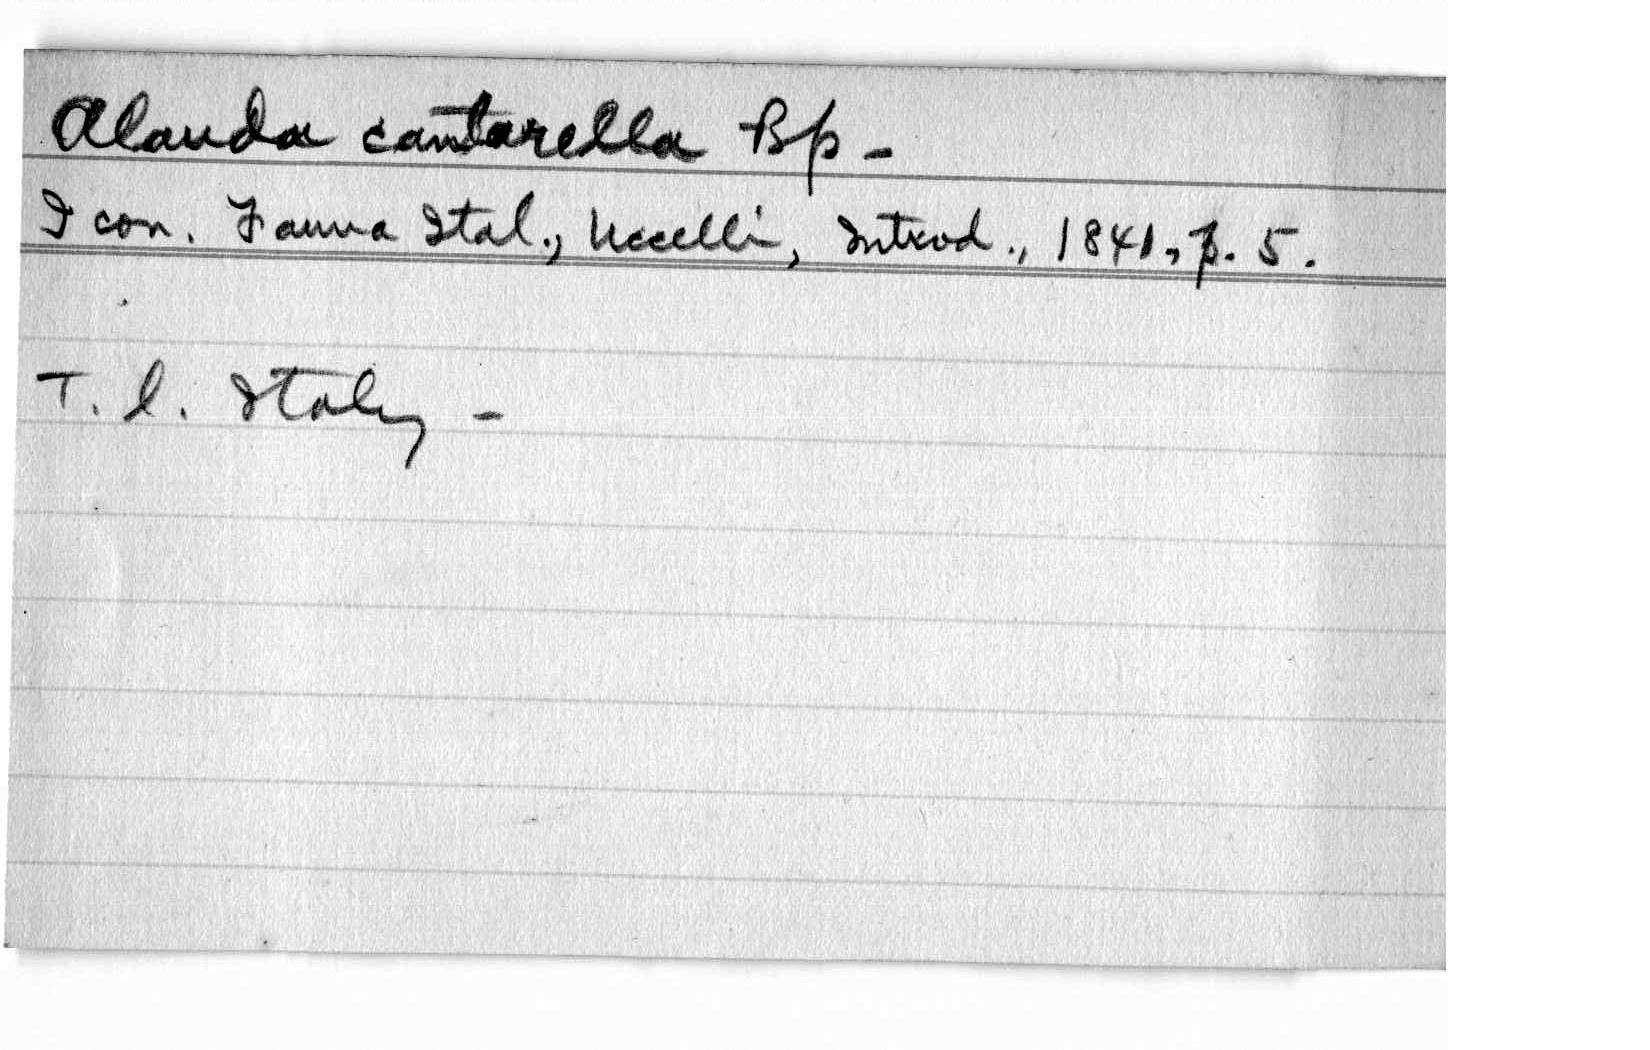 Alauda cantarella Bp -
Icon. Fauna Ital., Uccelli, Introd., 1841, p. 5.
T. l. Italy -